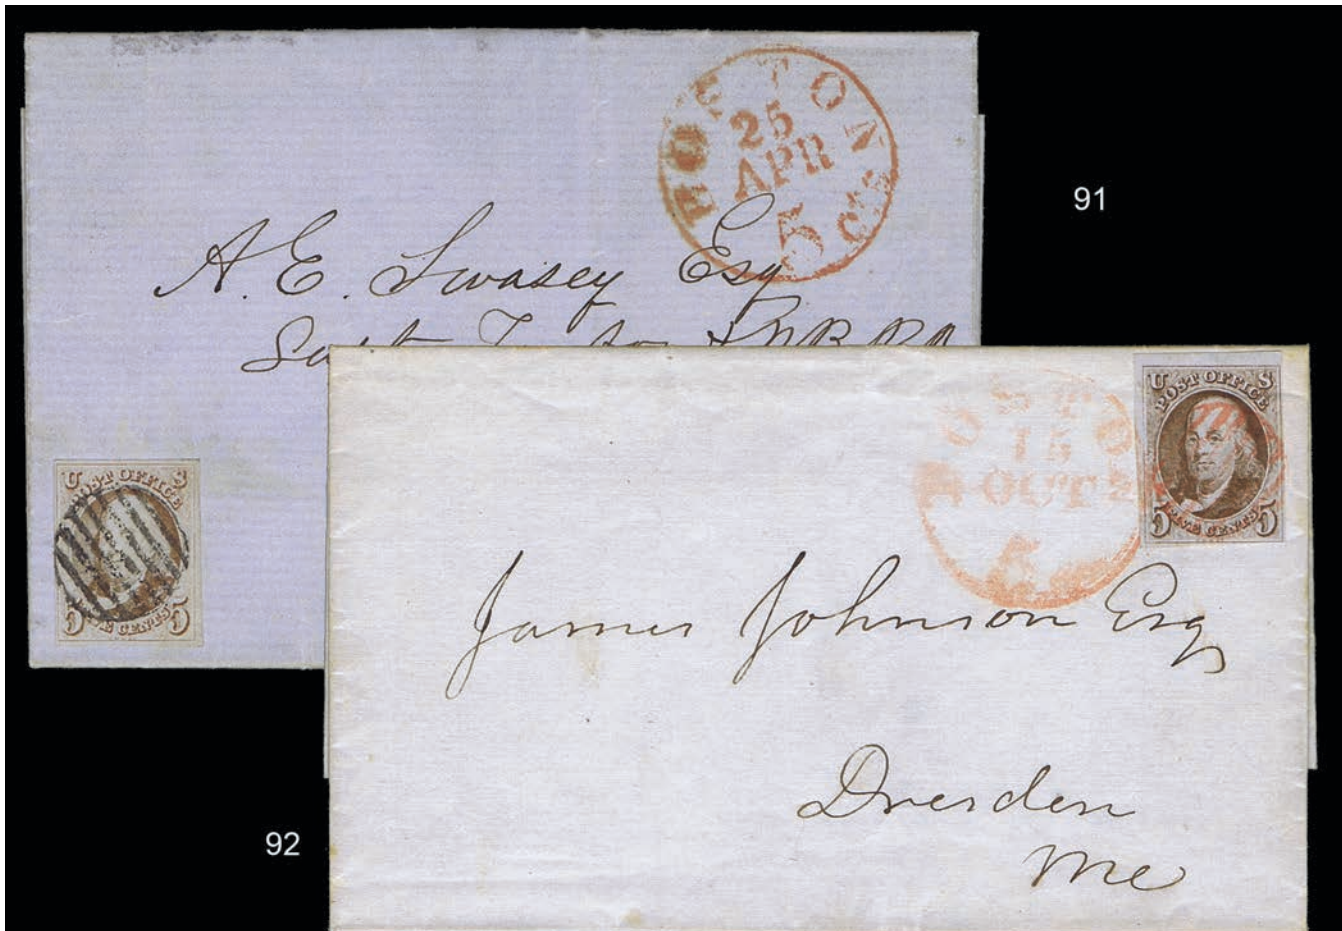 BOSTON
25
APR
5 Cts
91
A. E. Swasey Esq
U S
POST OFFICE
5 FIVE CENTS 5
BOSTON
15
OCT
5
U S
POST OFFICE
5 FIVE CENTS 5
James Johnson Esq
Dresden
Me
92